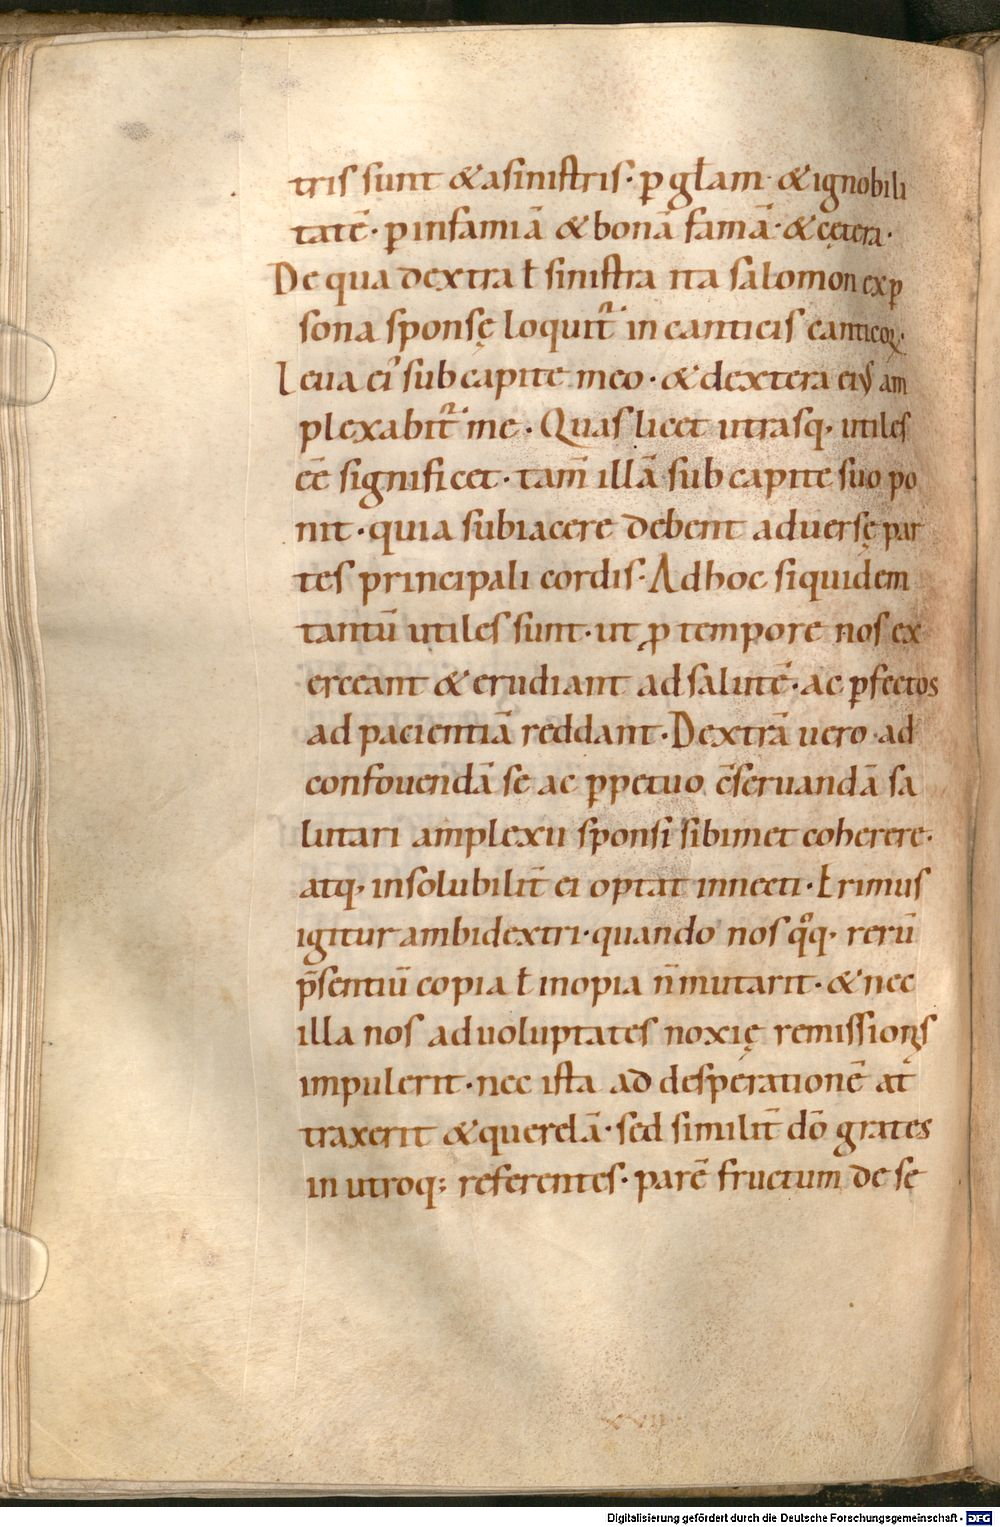 tris sunt & asinistris· ꝑ głam· & ignobili
tatē· ꝑ infamiā & bonā famā· & cętera·
De qua dextra ł sinistra ita salomon exp̱
sona sponsę loquit᷑ in canticis canticoꝝ·
Leua ei᾽ sub capite meo· & dextera eiꝰ am
plexabit᷑ me· Quas licet utrasq· utiles
eē significet· tam̄ illā sub capite suo po
nit· quia subiacere debent aduersę par
tes principali cordis· Adhoc siquidem
tantū utiles sunt· ut ꝓ tempore nos ex
erceant & erudiant ad salutē· ac ꝑfectos
ad pacientiā reddant· Dextrā uero ad
confouendā se ac ꝑpetuo c̄seruandā sa
lutari amplexu sponsi sibimet coherere·
atq· insolubilit̄ ei optat innecti· Erimus
igitur ambidextri· quando nos qͦq· rerū
p̄sentiū copia ł inopia n̄ mutarit· & nec
illa nos ad uoluptates noxię remissionis
impulerit· nec ista ad desperationē at
traxerit & querelā· sed similit̄ dō grates
in utroq; referentes· parē fructum de se
XVII
Digitalisierung gefördert durch die Deutsche Forschungsgemeinschaft - DFG